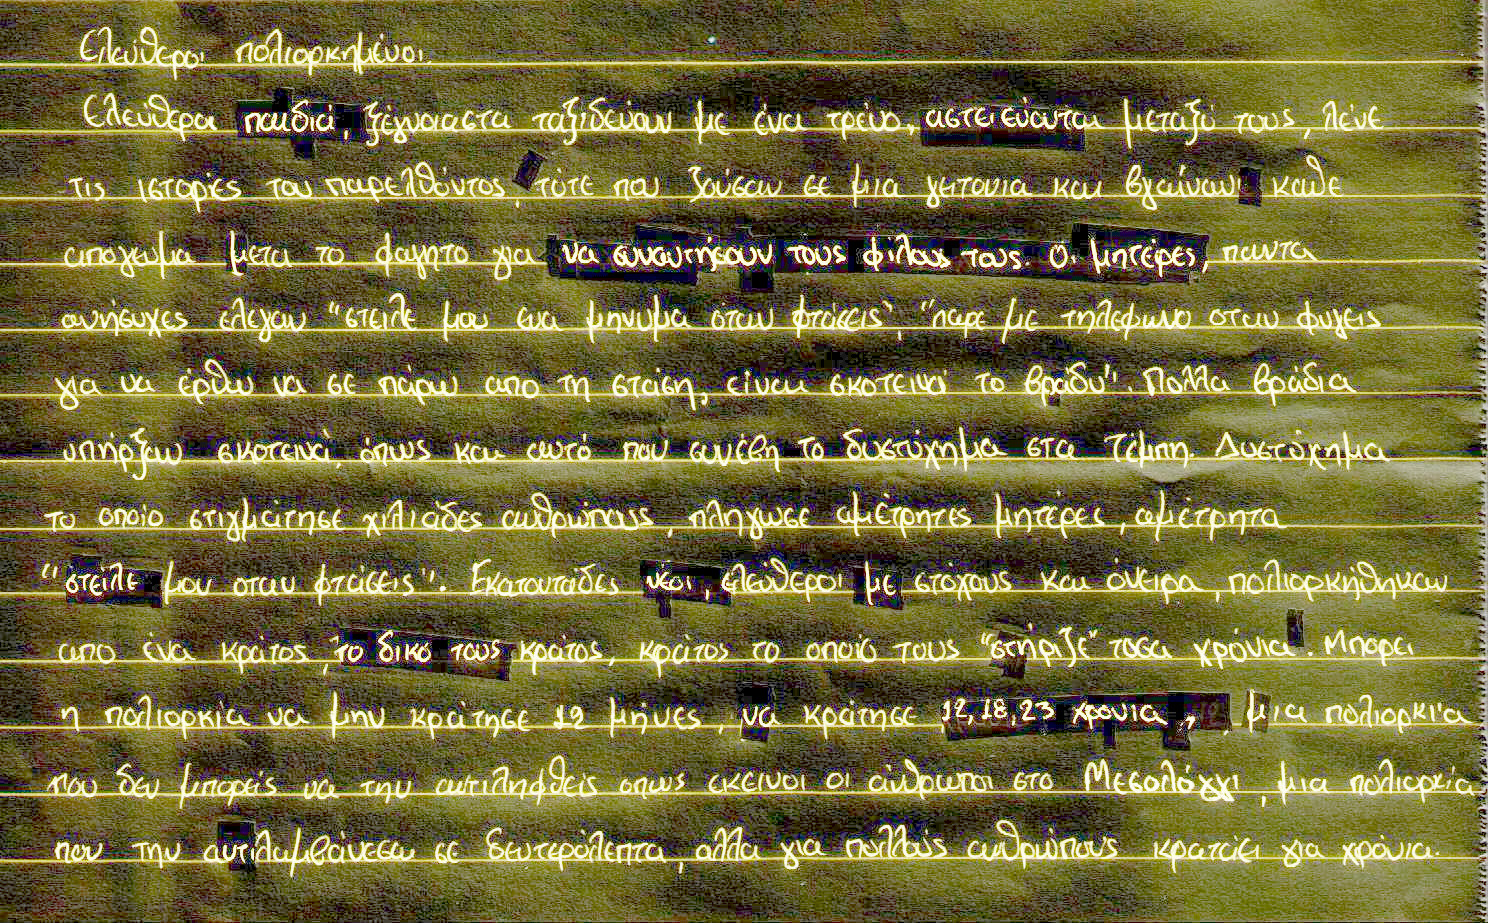 Ελεύθεροι πολιορκημένοι.
Ελεύθερα παιδιά, ξέγνοιαστα ταξιδεύουν με ένα τρένο, αστειεύονται μεταξύ τους, λένε
τις ιστορίες του παρελθόντος, τότε που ζούσαν σε μια γειτονια και βγαίνανε καθε
απογευμα μετα το φαγητο για να συναντήσουν τους φίλους τους. Οι μητέρες, παντα
ανήσυχες ελεγαν "στειλε μου ενα μηνυμα όταν φτάσεις", "παρε με τηλεφωνο οταν φυγεις
για να έρθω να σε πάρω απο τη στάση, είναι σκοτεινά το βράδυ". Πολλα βράδια
υπήρξαν σκοτεινά, όπως και αυτό που συνέβη το δυστύχημα στα Τέμπη. Δυστύχημα
το οποίο στιγμάτησε χιλιάδες ανθρώπους, πλήγωσε αμέτρητες μητέρες, αμέτρητα
"στείλε μου οταν φτάσεις". Εκατοντάδες νέοι, ελεύθεροι με στόχους και όνειρα, πολιορκήθηκαν
απο ένα κράτος, το δικό τους κράτος, κράτος το οποίο τους "στήριζε" τοσα χρόνια. Μπορει
η πολιορκία να μην κράτησε 12 μήνες, να κράτησε 12, 18, 23 χρονια, μια πολιορκία
που δεν μπορείς να την αντιληφθείς οπως εκεινοι οι άνθρωποι στο Μεσολόγγι, μια πολιορκία
που την αντιλαμβάνεσαι σε δευτερόλεπτα, αλλα για πολλούς ανθρώπους κρατάει για χρόνια.